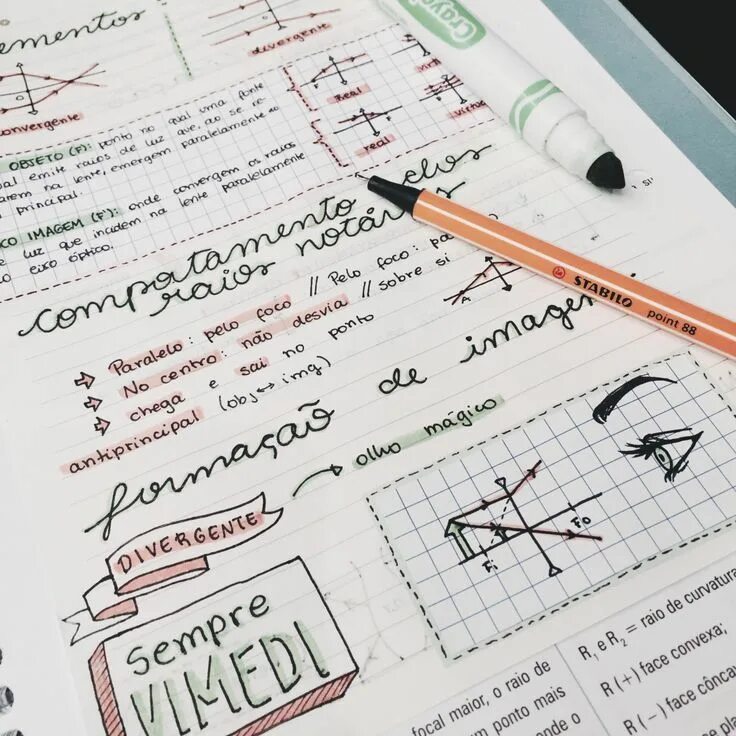 ementos
convergente
divergente
Real
real
virtu
OBJETO (F): ponto no qual uma fonte
ual emite raios de luz que, ao se re
arem na lente, emergem paralelamente ao
principal.
CO IMAGEM (F'): onde convergem os raios
e luz que incidem na lente paralelamente
o eixo óptico.
compotamento dos
raios notáveis
Paralelo: pelo foco // Pelo foco: pa
No centro: não desvia // sobre si
chega e sai no ponto
antiprincipal (obj ↔ img)
A
formação de imagen
→ olho mágico
DIVERGENTE
Sempre
VIMEDI
Fi
Fo
Crayola
STABILO point 88
focal maior, o raio de
um ponto mais
onde o
R₁ e R₂ = raio de curvatura
R (+) face convexa;
R (−) face côncav